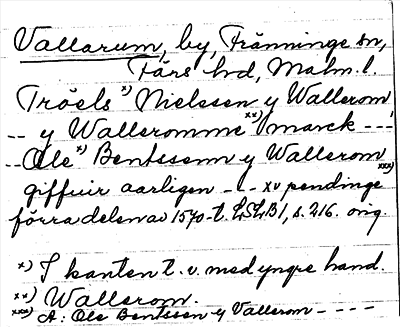 Vallarum, by, Tränninge sn,
Färs hrd, Malm. l.
Tröels x) Nielssen y Wallerom
-- y Walleromme xx) marck ---
-- Ole x) Bentssenn y Wallerom xxx)
giffuir aarligen --- xv pendinge
förra delen av 1570-t. LSLB1, s. 216. orig.
x) I kanten t. v. med yngre hand.
xx) Wallerom.
xxx) A: Ole Bentssen y Vallerom ----